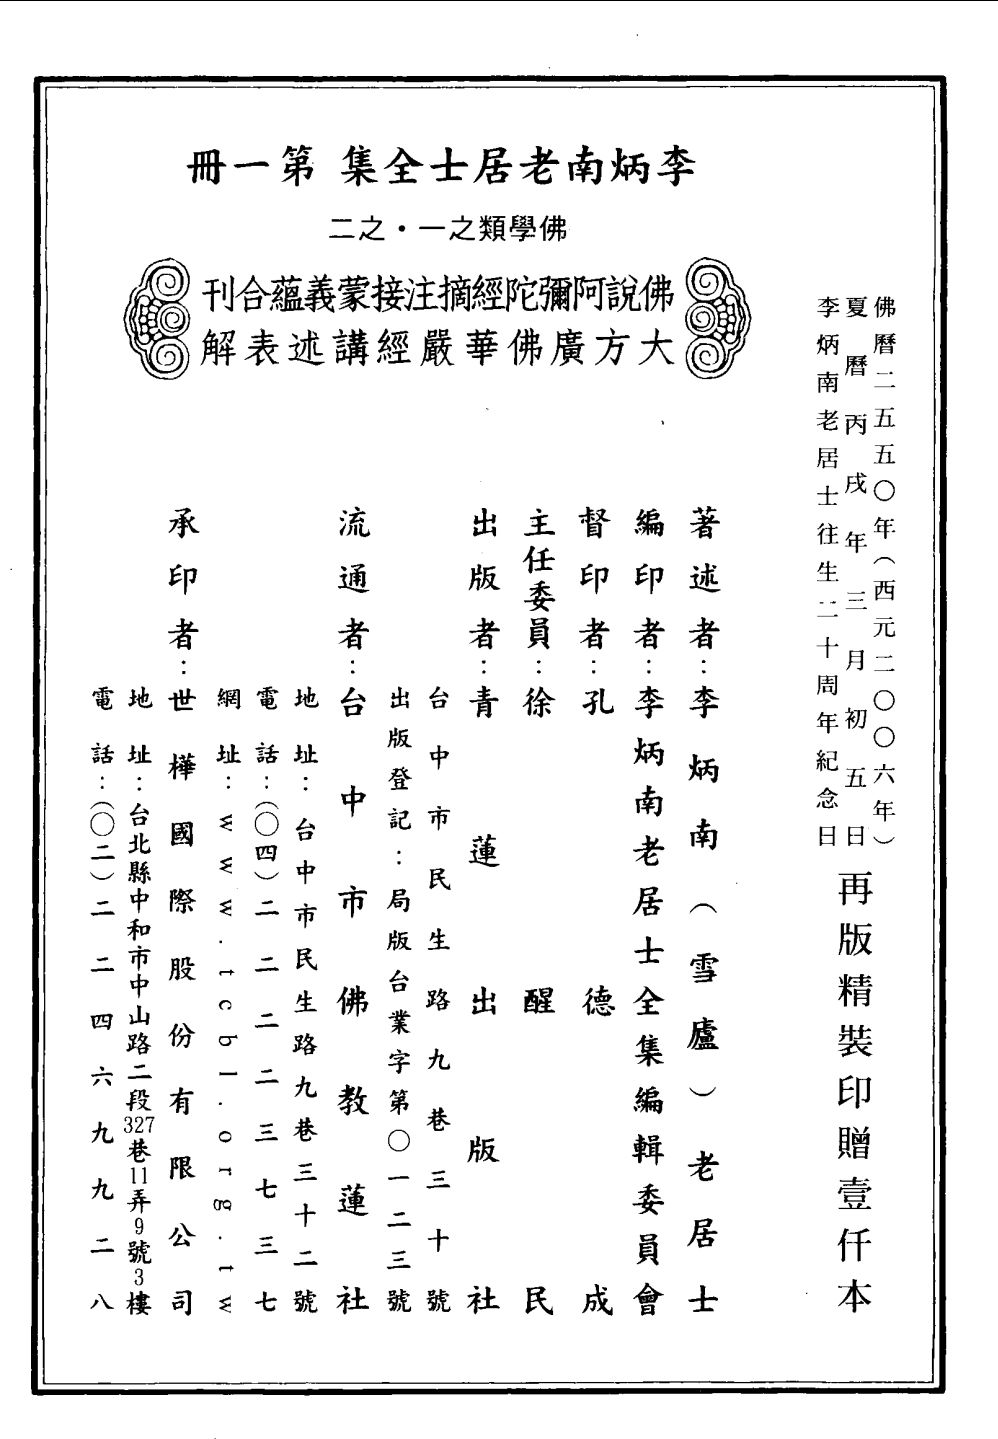 李炳南老居士全集 第一冊
佛學類之一・之二
佛說阿彌陀經摘注接蒙義蘊合刊
大方廣佛華嚴經講述表解
佛曆二五五〇年(西元二〇〇六年)
夏曆丙戌年三月初五日
李炳南老居士往生二十周年紀念日
再版精裝印贈壹仟本
著述者:李炳南(雪廬)老居士
編印者:李炳南老居士全集編輯委員會
督印者:孔德成
主任委員:徐醒民
出版者:青蓮出版社
台中市民生路九巷三十號
出版登記:局版台業字第〇一二三號
流通者:台中市佛教蓮社
地址:台中市民生路九巷三十二號
電話:(〇四)二二二二三七三七
網址:www.tcbl.org.tw
承印者:世樺國際股份有限公司
地址:台北縣中和市中山路二段327巷11弄9號3樓
電話:(〇二)二二四六九九二八